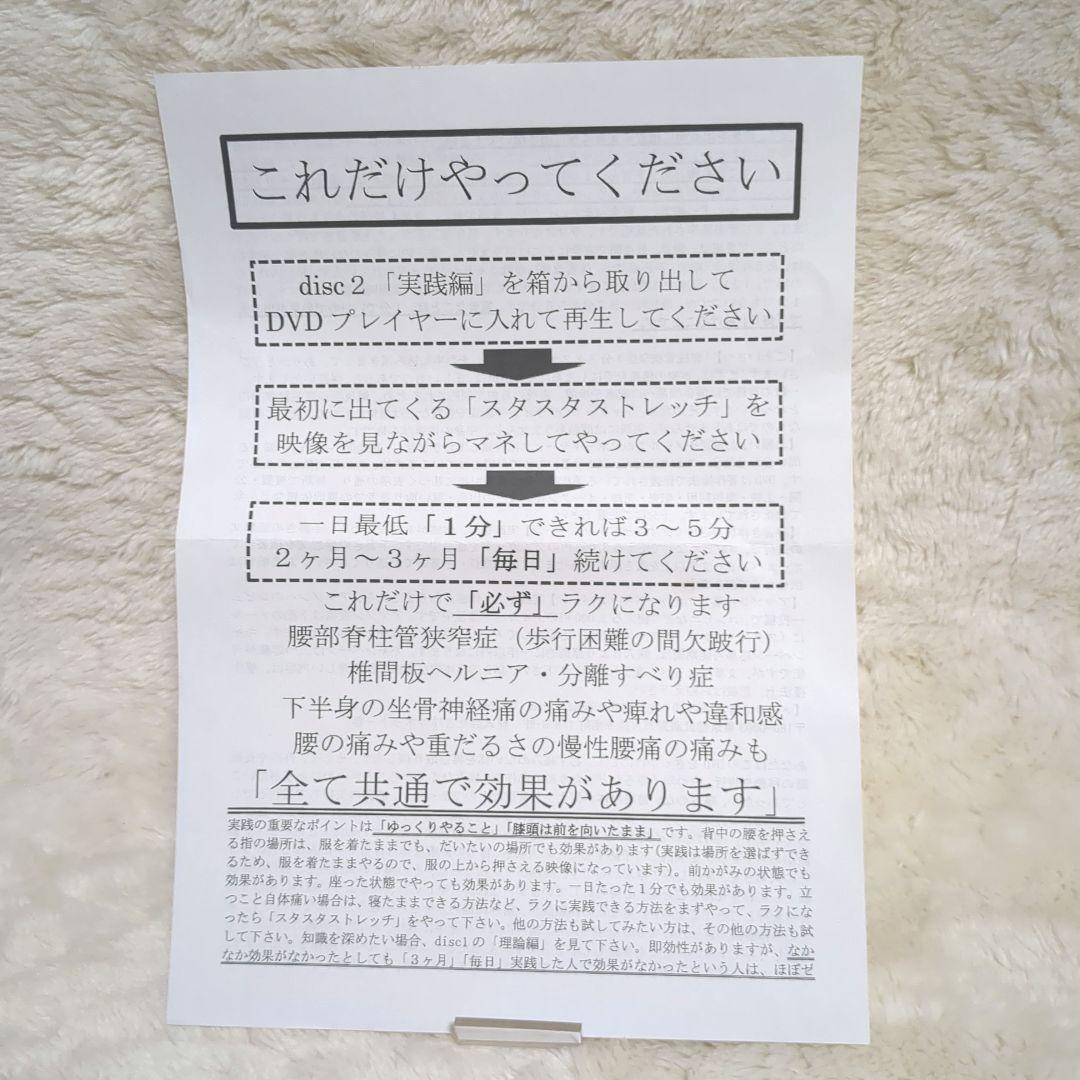 これだけやってください
disc２「実践編」を箱から取り出して
DVDプレイヤーに入れて再生してください
最初に出てくる「スタスタストレッチ」を
映像を見ながらマネしてやってください
一日最低「１分」できれば３～５分
２ヶ月～３ヶ月「毎日」続けてください
これだけで「必ず」ラクになります
腰部脊柱管狭窄症（歩行困難の間欠跛行）
椎間板ヘルニア・分離すべり症
下半身の坐骨神経痛の痛みや痺れや違和感
腰の痛みや重だるさの慢性腰痛の痛みも
「全て共通で効果があります」
実践の重要なポイントは「ゆっくりやること」「膝頭は前を向いたまま」です。背中の腰を押さえ
る指の場所は、服を着たままでも、だいたいの場所でも効果があります(実践は場所を選ばずでき
るため、服を着たままやるので、服の上から押さえる映像になっています)。前かがみの状態でも
効果があります。座った状態でやっても効果があります。一日たった１分でも効果があります。立
つこと自体痛い場合は、寝たままできる方法など、ラクに実践できる方法をまずやって、ラクにな
ったら「スタスタストレッチ」をやって下さい。他の方法も試してみたい方は、その他の方法も試
して下さい。知識を深めたい場合、disc1の「理論編」を見て下さい。即効性がありますが、なか
なか効果がなかったとしても「３ヶ月」「毎日」実践した人で効果がなかったという人は、ほぼゼ